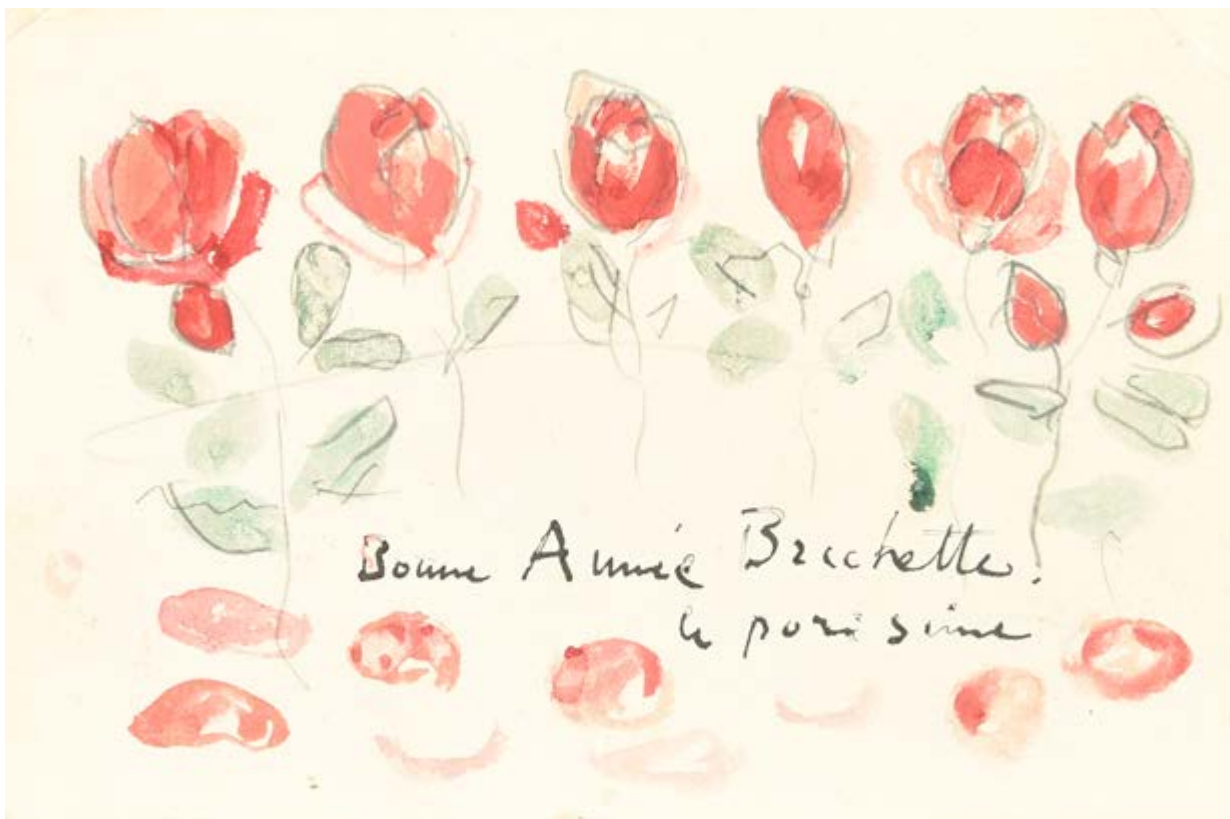 Bonne Année Brichette.
le porissime